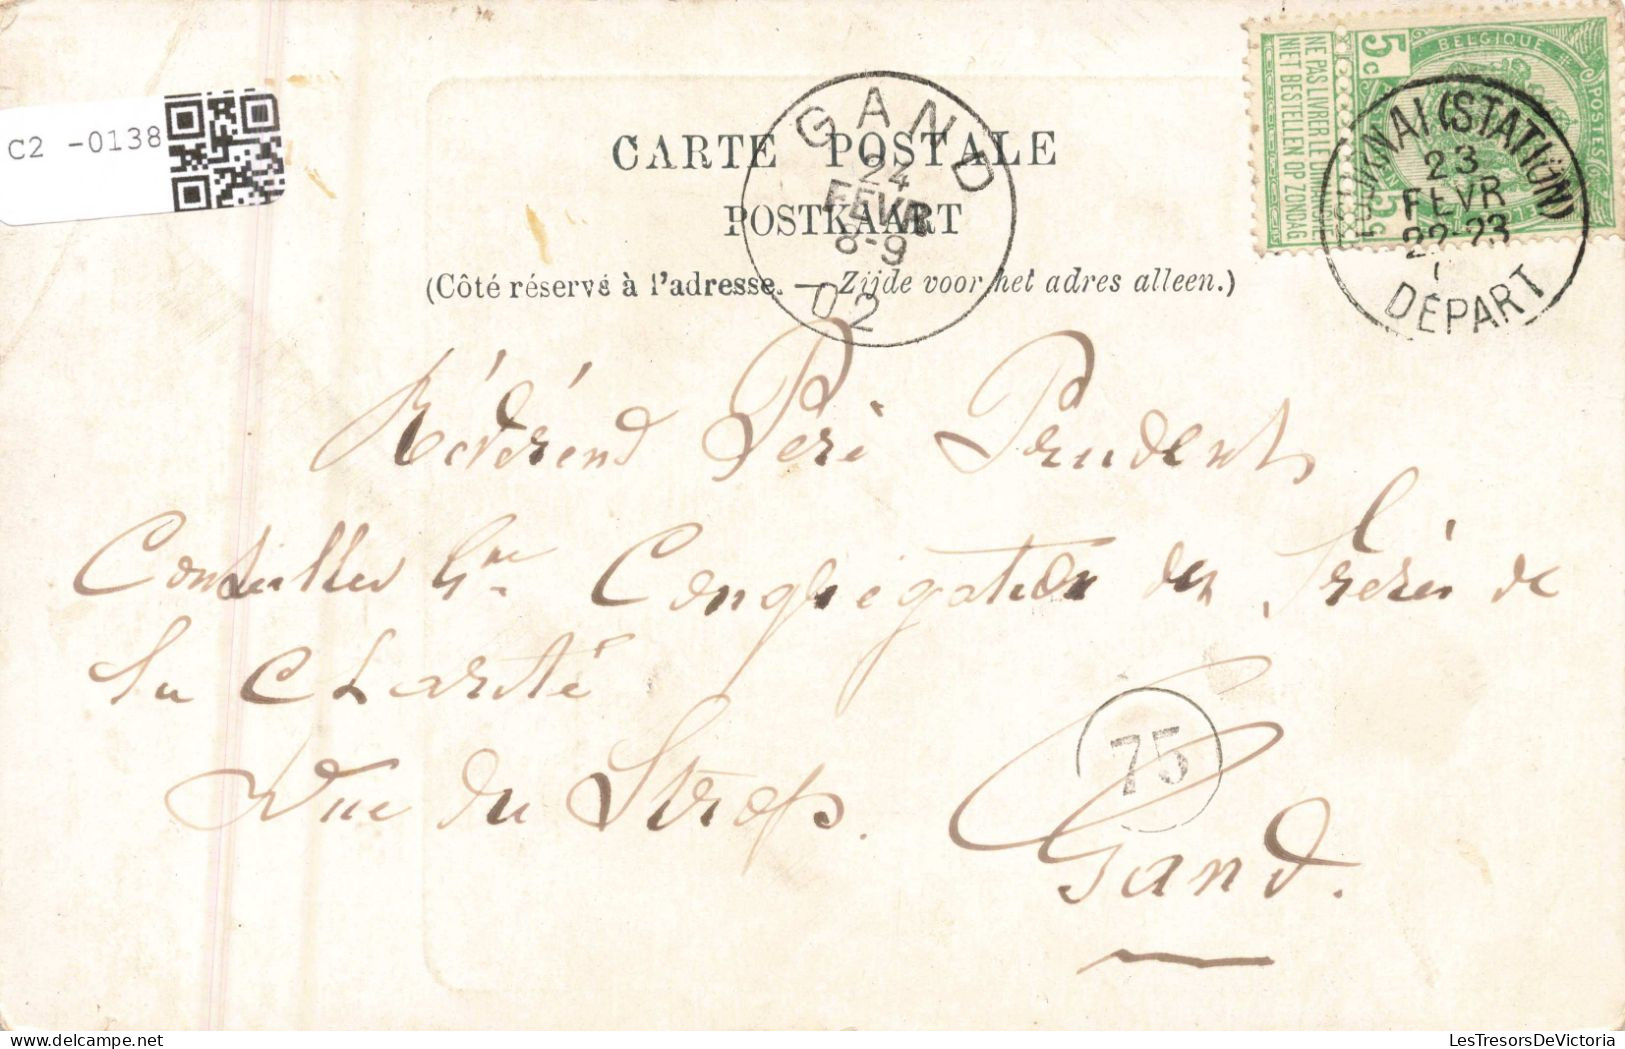 C2 -0138
CARTE POSTALE
POSTKAART
(Côté réservé à l'adresse. — Zijde voor het adres alleen.)
GAND
24
FEVR
8-9
02
5c BELGIQUE POSTES
NE PAS LIVRER LE DIMANCHE
NIET BESTELLEN OP ZONDAG
5c
TOURNAI (STATION)
23
FEVR
22-23
DEPART
Révérend Père Prudent
Conseiller Gme Congrégation des Frères de
la Charité
Rue du Strop.
75
Gand.
LesTresorsDeVictoria.com